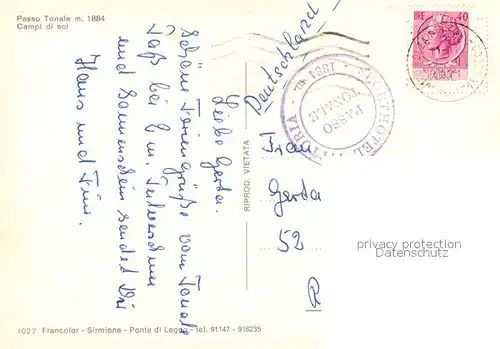 Passo Tonale m. 1884
Campi di sci
Liebe Gerda.
Schöne Feriengrüße vom Tonale
Paß bei 2 m.
und Sonnenschein sendet Dir
Hans und Fini.
RIPROD. VIETATA
Deutschland
SPORTHOTEL VITTORIA
m. 1884
PASSO
TONALE
LIRE 40
Frau
Gerda
52
privacy protection
Datenschutz
1027 Francolor - Sirmione - Ponte di Legno - tel. 91147 - 916235